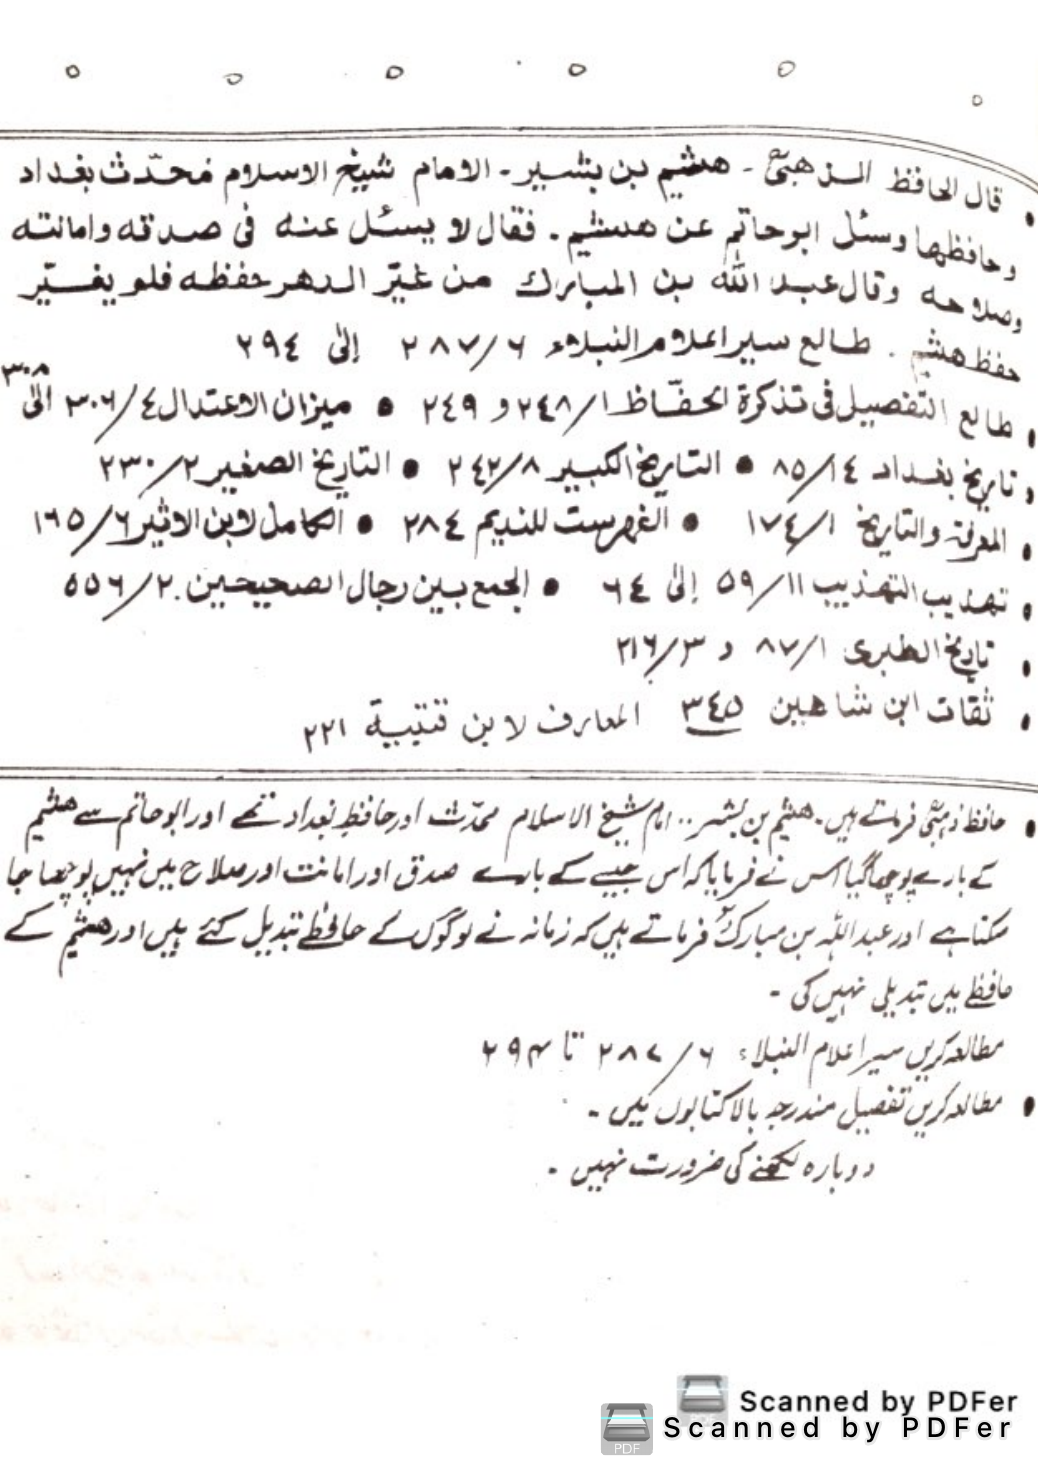 • قال الحافظ الذهبیؒ - هشیم بن بشیر - الامام شیخ الاسلام محدّث بغداد
وحافظها وسئل ابوحاتم عن هشیم . فقال لا یسئل عنه فی صدقه وامانته
وصلاحه وقال عبد الله بن المبارك من غیّر الدهر حفظه فلو یغیّر
حفظ هشیم . طالع سیر اعلام النبلاء ٦/٢٨٧ الیٰ ٢٩٤
• طالع التفصیل فی تذکرة الحفّاظ ١/٢٤٨ و ٢٤٩ • میزان الاعتدال ٤/٣٠٦ الیٰ ٣٠٨
• تاریخ بغداد ١٤/٨٥ • التاریخ الکبیر ٨/٢٤٢ • التاریخ الصغیر ٢/٢٣٠
• المعرفة والتاریخ ١/١٧٤ • الفهرست للندیم ٢٨٤ • الکامل لابن الاثیر ٦/١٦٥
• تهذیب التهذیب ١١/٥٩ الیٰ ٦٤ • الجمع بین رجال الصحیحین ٢/٥٥٦
• تاریخ الطبری ١/٨٧ و ٣/٢١٦
• ثقات ابن شاهین ٣٤٥ المعارف لابن قتیبة ٢٢١
• حافظ ذہبیؒ فرماتے ہیں - ھشیم بن بشیر .. امام شیخ الاسلام محدّث اور حافظِ بغداد تھے اور ابوحاتم سے ھشیم
کے بارے پوچھا گیا اس نے فرمایا کہ اس جیسے کے بارے صدق اور امانت اور صلاح میں نہیں پوچھا جا
سکتا ہے اور عبد اللہ بن مبارکؒ فرماتے ہیں کہ زمانہ نے لوگوں کے حافظے تبدیل کئے ہیں اور ھشیم کے
حافظے میں تبدیلی نہیں کی -
مطالعہ کریں سیر اعلام النبلاء ٦/٢٨٧ تا ٢٩٤
• مطالعہ کریں تفصیل مندرجہ بالا کتابوں میں -
دوبارہ لکھنے کی ضرورت نہیں -
Scanned by PDFer
Scanned by PDFer
PDF